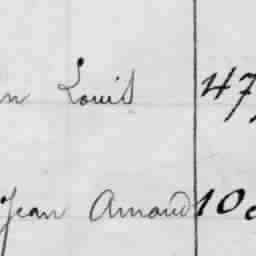 n Louis 47
Jean Arnaud 10